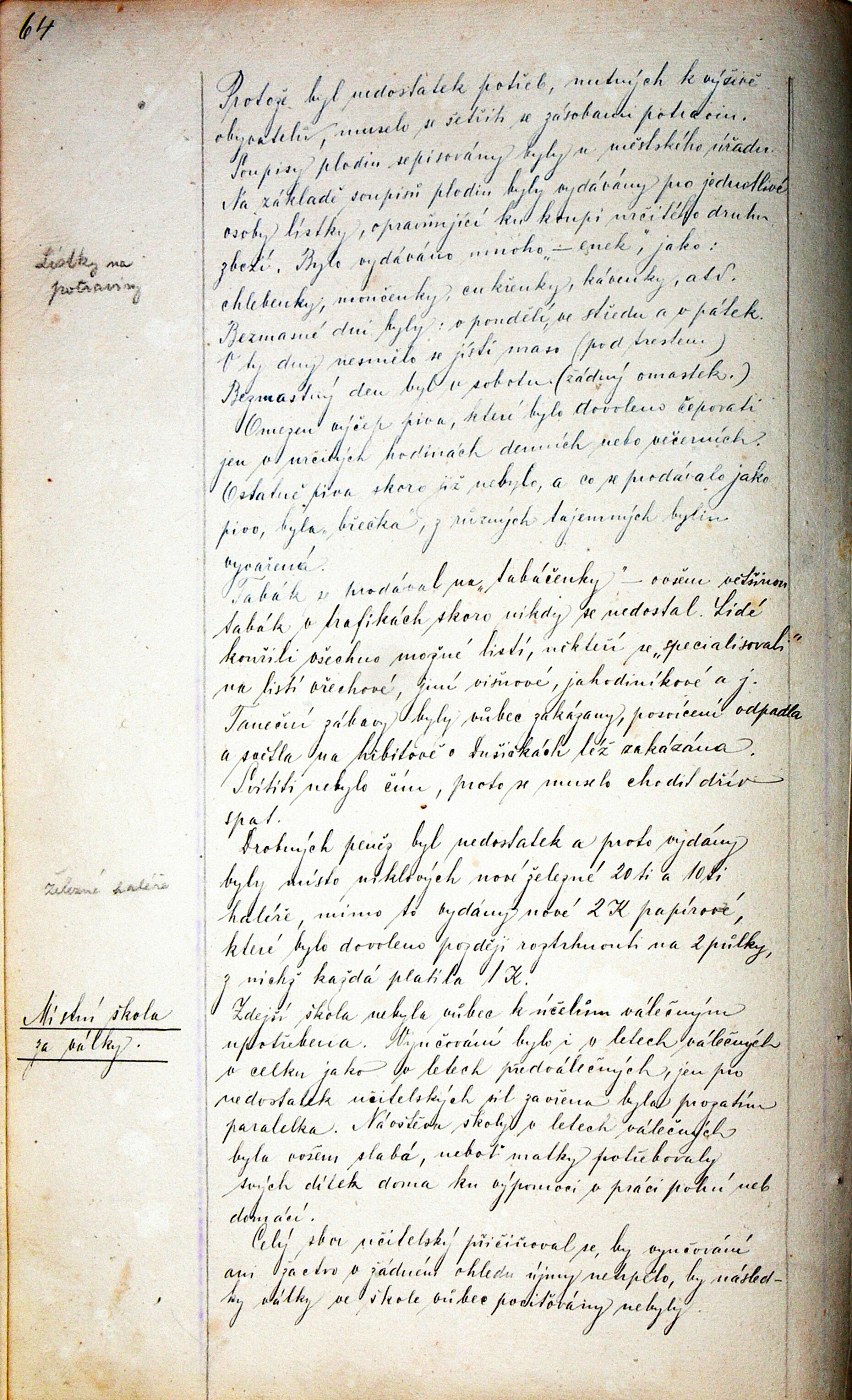 64
Protože byl nedostatek potřeb, nutných k výživě
obyvatelů, muselo se šetřiti se zásobami potravin.
Soupisy plodin sepisovány byly u městského úřadu.
Na základě soupisů plodin byly vydávány pro jednotlivé
osoby lístky, opravňující ku koupi určitého druhu
zboží. Bylo vydáváno mnoho „– enek", jako:
Lístky na
potraviny
chlebenky, moučenky, cukřenky, kávenky, atd.
Bezmasné dni byly: o pondělí, ve středu a v pátek.
V ty dny nesmělo se jísti maso (pod trestem.)
Bezmastný den byl v sobotu (žádný omastek.)
Omezen výčep piva, které bylo dovoleno čepovati
jen v určitých hodinách denních nebo večerních.
Ostatně piva skoro již nebylo, a co se prodávalo jako
pivo, byla „břečka", z různých tajemných bylin
vyvařená.
Tabák se prodával na „tabáčenky" – ovšem většinou
tabák v trafikách skoro nikdy se nedostal. Lidé
kouřili všechno možné listí, někteří se „specialisovali"
na listí ořechové, jiní višňové, jahodiníkové a j.
Taneční zábavy byly vůbec zakázany, posvícení odpadla
a světla na hřbitově o Dušičkách též zakázána.
Svítiti nebylo čím, proto se muselo chodit dřív
spat.
Drobných peněz byl nedostatek a proto vydány
byly místo niklových nové železné 20ti a 10ti
železné haléře
haléře, mimo to vydány nové 2 K papírové,
které bylo dovoleno později roztrhnouti na 2 půlky,
z nichž každá platila 1 K.
Místní škola
za války.
Zdejší škola nebyla vůbec k účelům válečným
upotřebena. Vyučování bylo i v letech válečných
v celku jako v letech předválečných, jen pro
nedostatek učitelských sil zavřena byla prozatím
paralelka. Návštěva školy v letech válečných
byla ovšem slabá, neboť matky potřebovaly
svých dítek doma ku výpomoci v práci polní neb
domácí.
Celý sbor učitelský přičiňoval se, by vyučování
ani žactvo v žádném ohledu újmy netrpělo, by násled-
ky války ve škole vůbec pociťovány nebyly.